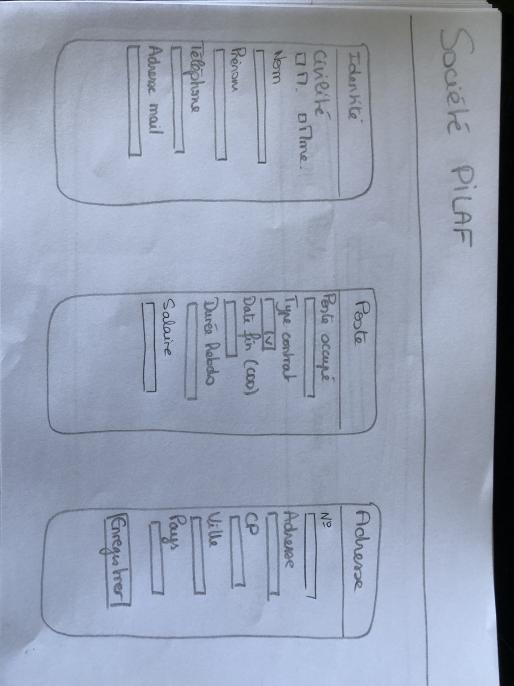 Société PILAF
Identité
Civilité
M. Mme.
Nom
Prénom
Téléphone
Adresse mail
Poste
Poste occupé
Type contrat
V
Date fin (CDD)
Durée Hebdo
Salaire
Adresse
N°
Adresse
CP
Ville
Pays
Enregistrer